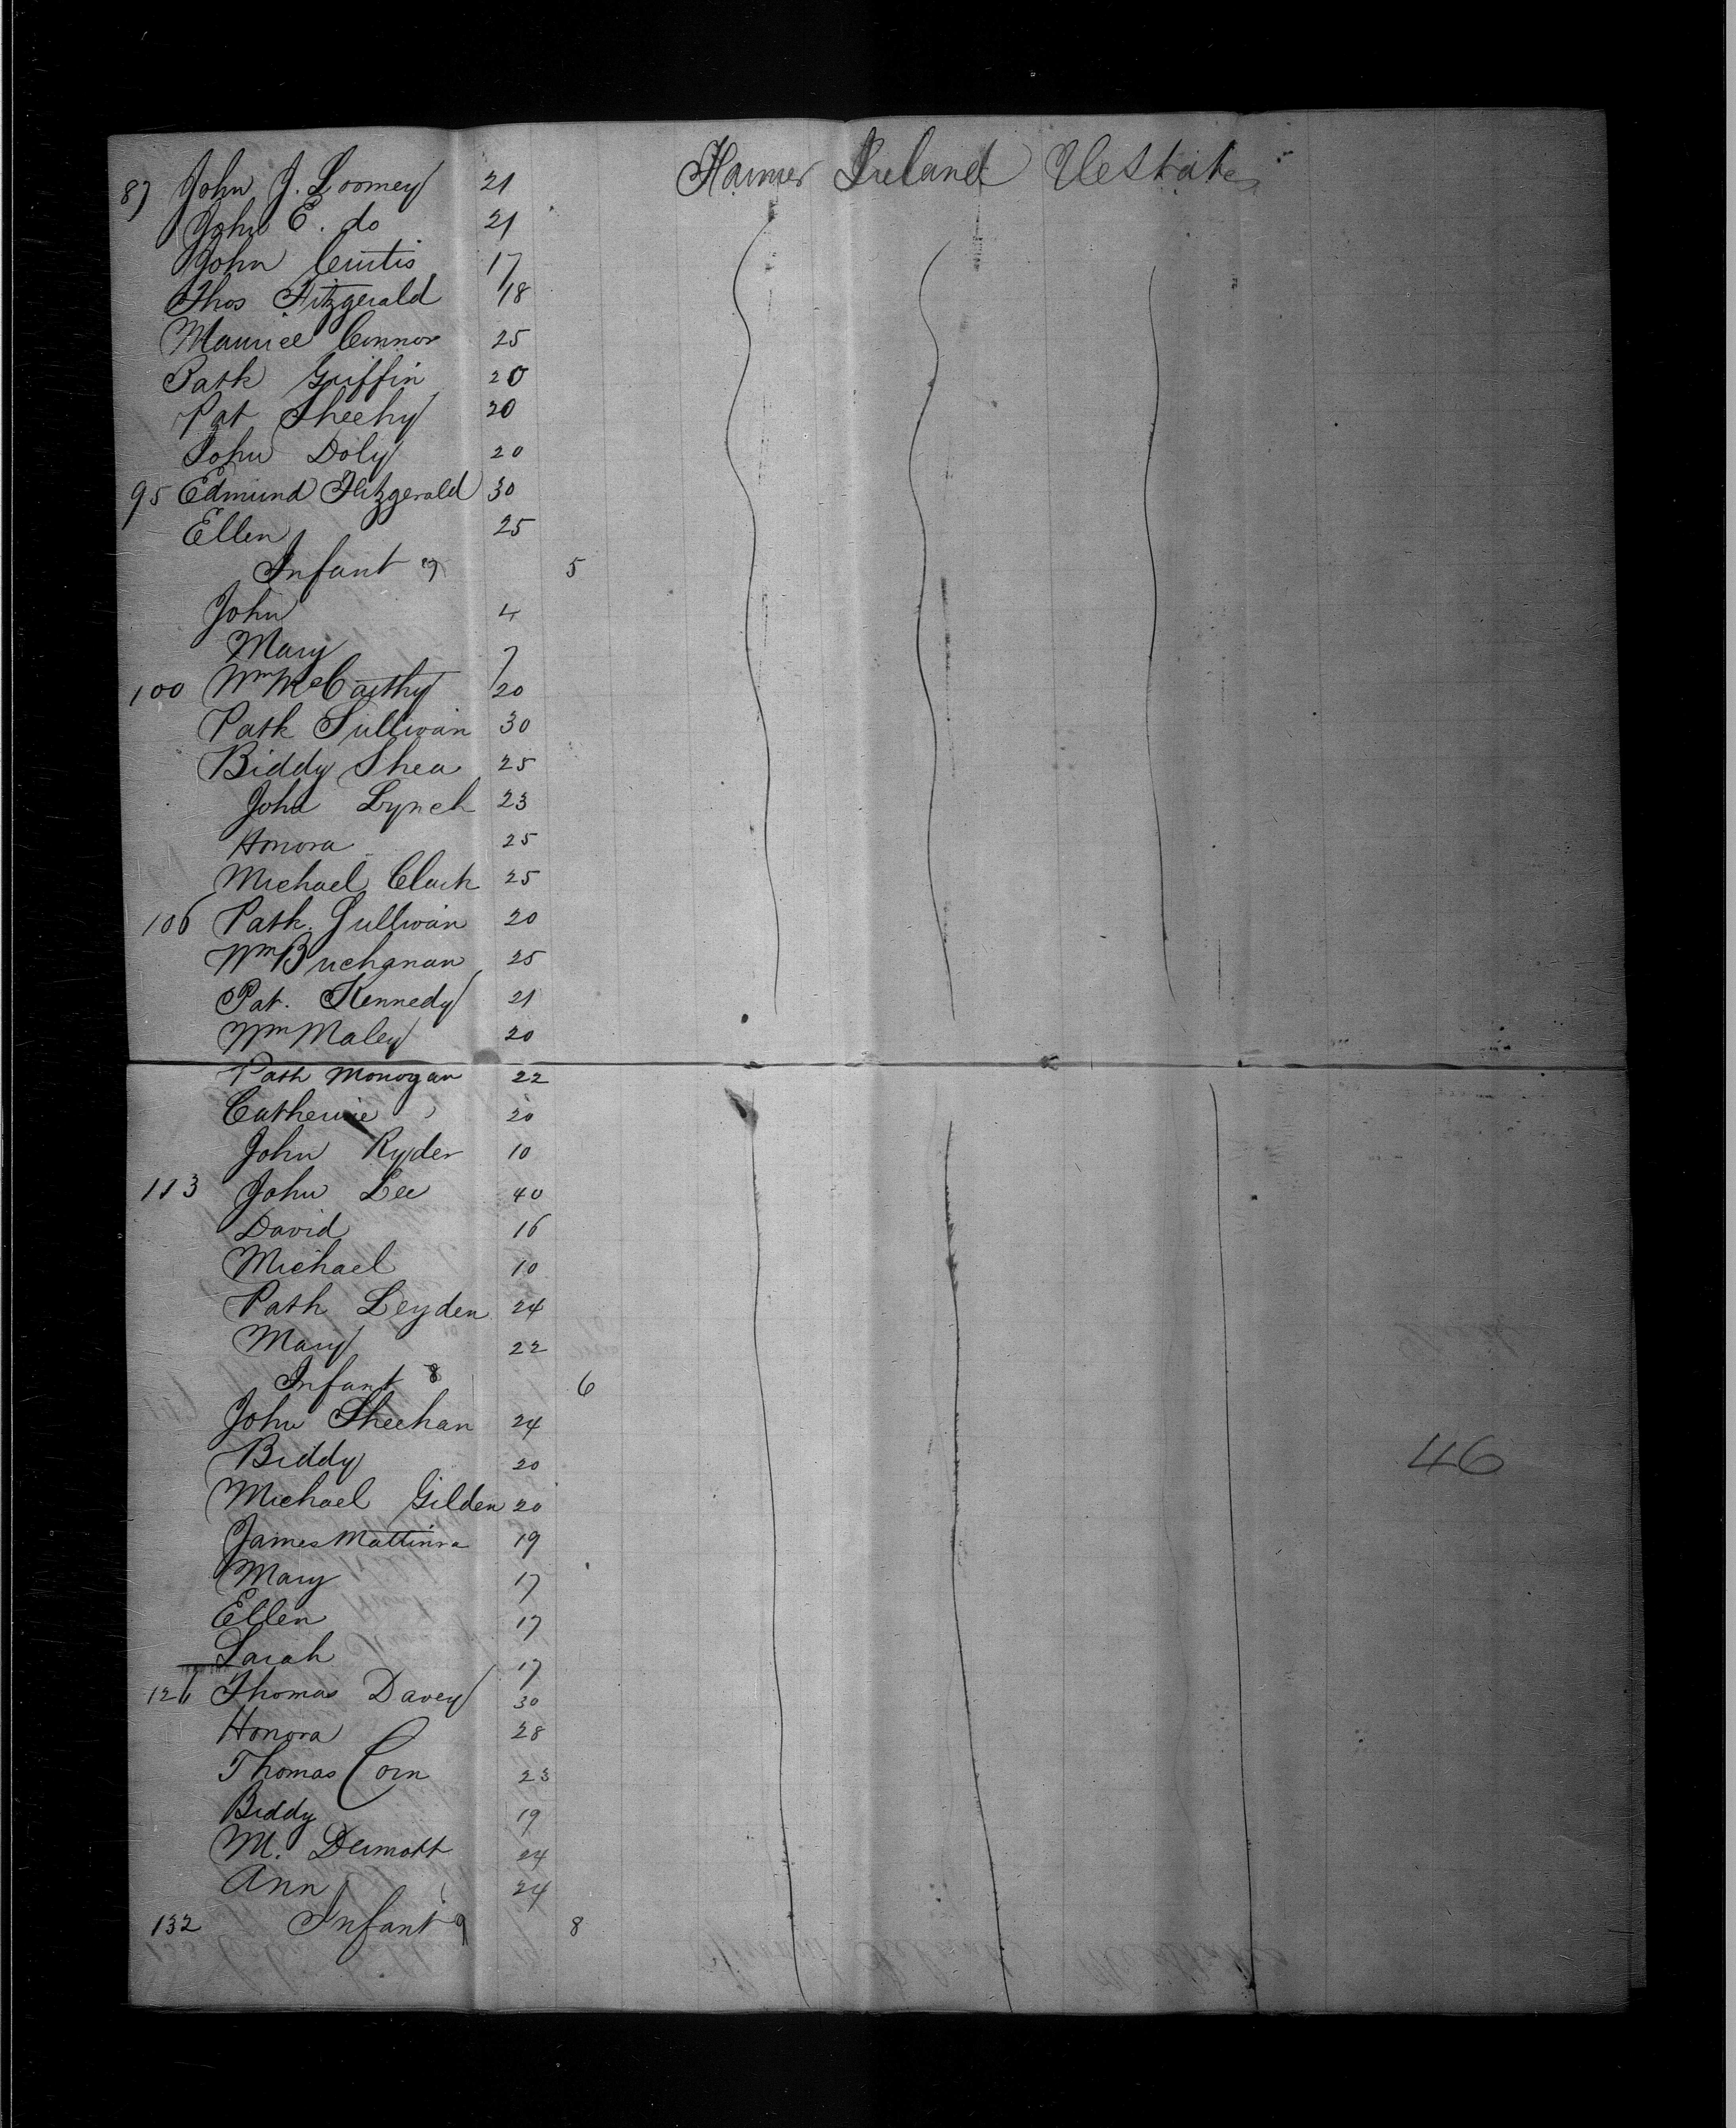 87 John J. Loomey 21 Ireland
John E. do 21
John Curtis 17
Thos Fitzgerald 18
Maurice Connor 25
Patk Griffin 20
Pat Sheehy 20
John Doly 20
95 Edmund Fitzgerald 30
Ellen 25
Infant 5
John 4
Mary 7
100 Wm McCarthy 20
Patk Sullivan 30
Biddy Shea 25
John Lynch 23
Honora 25
Michael Clark 25
106 Patk. Sullivan 20
Wm Buchanan 25
Pat. Kennedy 21
Wm Maley 20
Patk Monogan 22
Catherine 20
John Ryder 10
113 John Lee 40
David 16
Michael 10
Patk Leyden 24
Mary 22
Infant 8 6
John Sheehan 24
Biddy 20
46
Michael Gilden 20
James 19
Mary 17
Ellen 17
Sarah 17
126 Thomas Davey 30
Honora 28
Thomas Corn 23
Biddy 19
M. Dermott 24
Ann 24
132 Infant 9 8